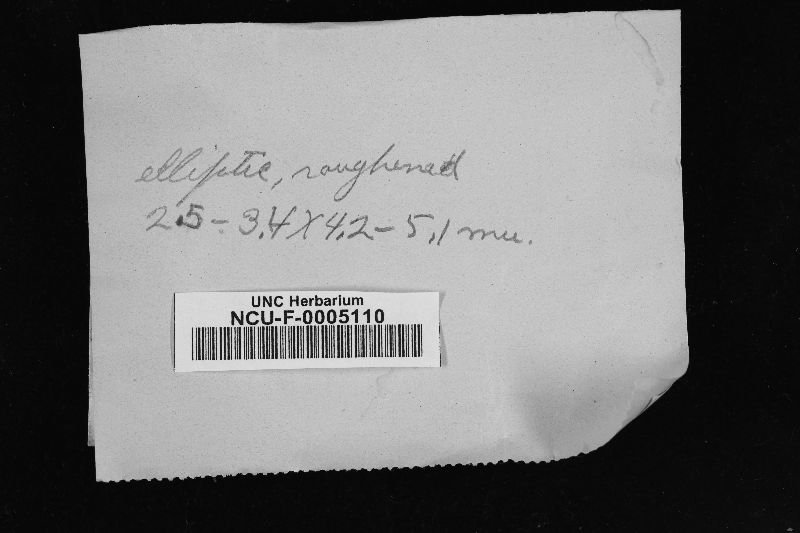 elliptic, roughened
2.5 - 3.4 X 4.2 - 5.1 mu.
UNC Herbarium
NCU-F-0005110